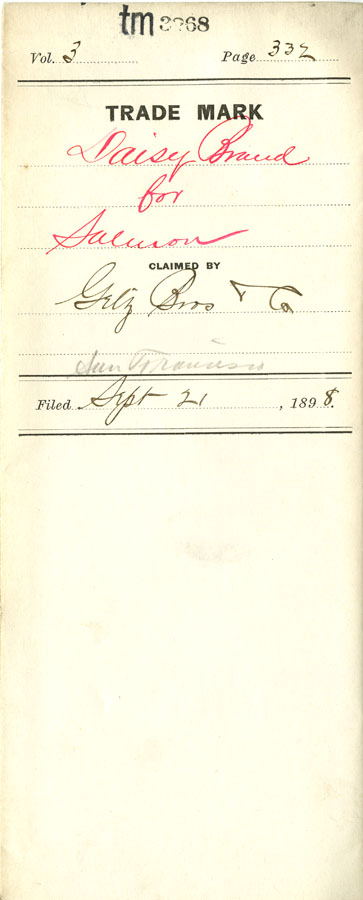 tm 3268
Vol. 3 Page 332
TRADE MARK
Daisy Brand
for
Salmon
CLAIMED BY
Getz Bros & Co
San Francisco
Filed Sept 21, 1898.